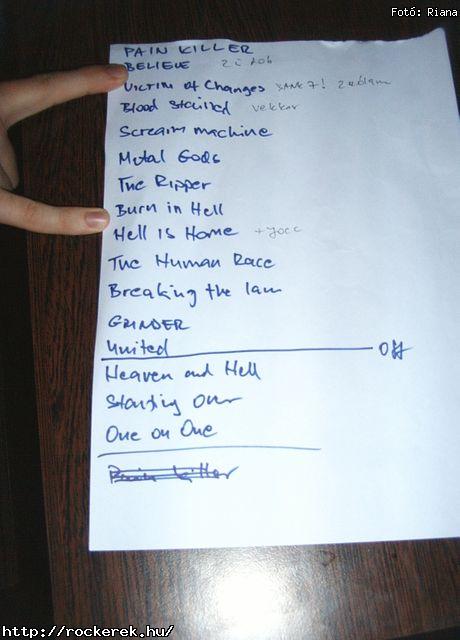 Fotó: Riana
PAIN KILLER
BELIEVE
Victim of Changes
Blood Stained
Scream machine
Metal Gods
The Ripper
Burn in Hell
Hell is Home
The Human Race
Breaking the law
GRINDER
United
Off
Heaven and Hell
Starting Over
One on One
Pain killer
http://rockerek.hu/